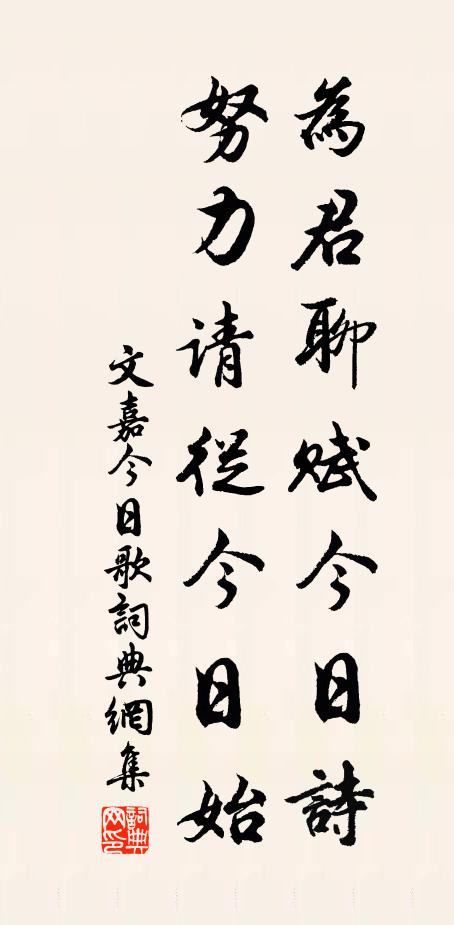 為君聊赋今日詩
努力请從今日始
文嘉今日歌詞典網集
詞典網印